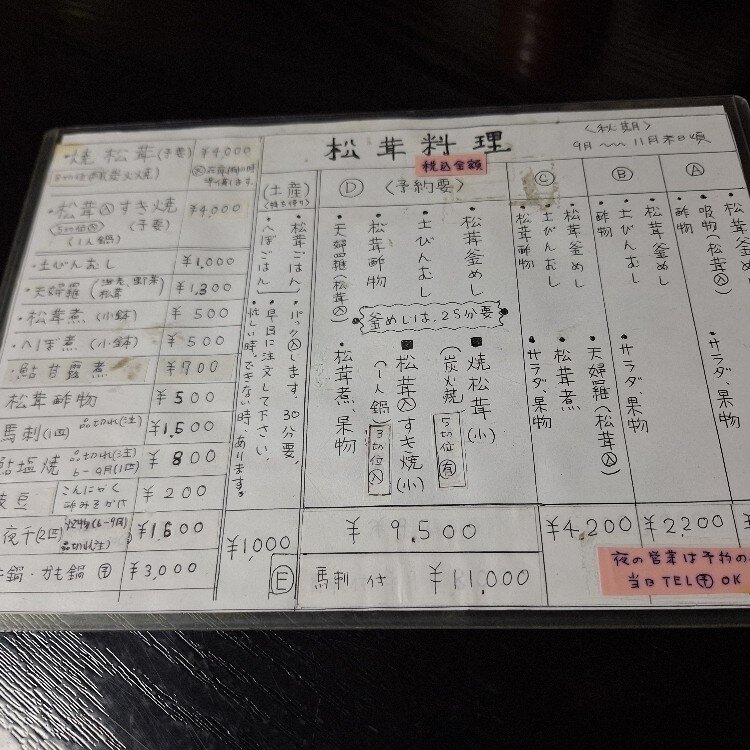 松茸料理
税込金額
〈秋期〉
9月〜11月末日頃
Ⓐ
・松茸釜めし
・吸物(松茸入)
・酢物
・サラダ、果物
Ⓑ
・松茸釜めし
・土びんむし
・酢物
・サラダ、果物
¥2,200
Ⓒ
・松茸釜めし
・土びんむし
・松茸酢物
・天婦羅(松茸入)
・松茸煮
・サラダ、果物
¥4,200
Ⓓ 〈予約要〉
・松茸釜めし
・土びんむし
・松茸酢物
・天婦羅(松茸入)
釜めしは、25分要
■焼松茸(小)
(炭火焼)
5切位(有)
■松茸入すき焼(小)
(一人鍋)
3切位入
・松茸煮、果物
¥9,500
馬刺付 ¥11,000
(土産)
(持ち帰り)
・松茸ごはん
・へぼごはん
・パック入します。30分要。
・早目に注文して下さい
忙しい時、できない時、あります。
¥1,000
Ⓔ
・焼松茸(予要) ¥4,000
・松茸入すき焼 ¥4,000
(1人鍋) (予要)
・土びんむし ¥1,000
・天婦羅(海老、野菜 松茸) ¥1,300
・松茸煮(小鉢) ¥500
・へぼ煮(小鉢) ¥500
・鮎甘露煮 ¥700
松茸酢物 ¥500
馬刺(1皿) 品切れ(注) ¥1,500
鮎塩焼 品切れ(注) 6〜9月(1皿) ¥800
枝豆 こんにゃく 酢みそかけ ¥200
夜干(2匹) (6〜9月) 品切れ(注) ¥1,600
鍋・かも鍋 予 ¥3,000
夜の営業は予約の
当日TEL予OK